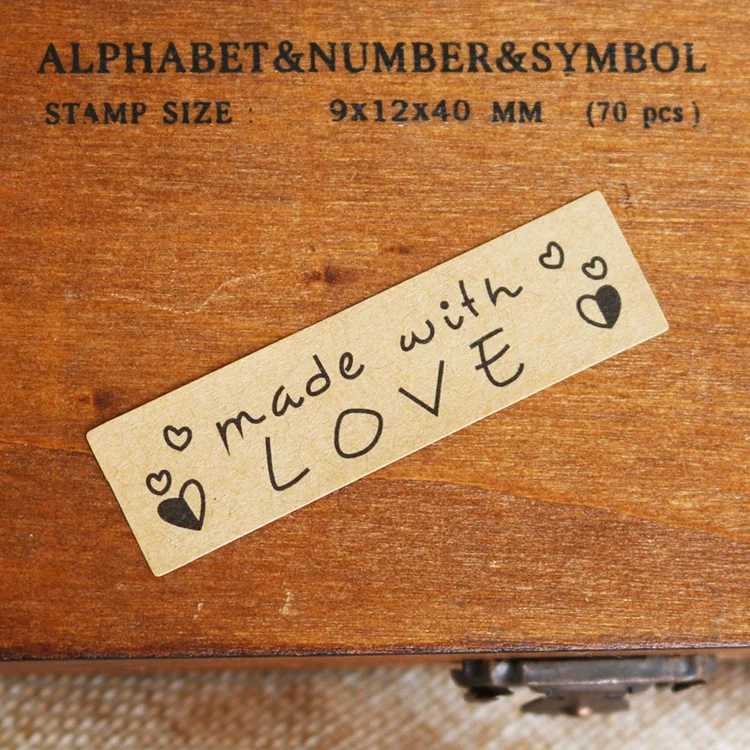 ALPHABET&NUMBER&SYMBOL
STAMP SIZE : 9x12x40 MM (70 pcs)
made with
LOVE